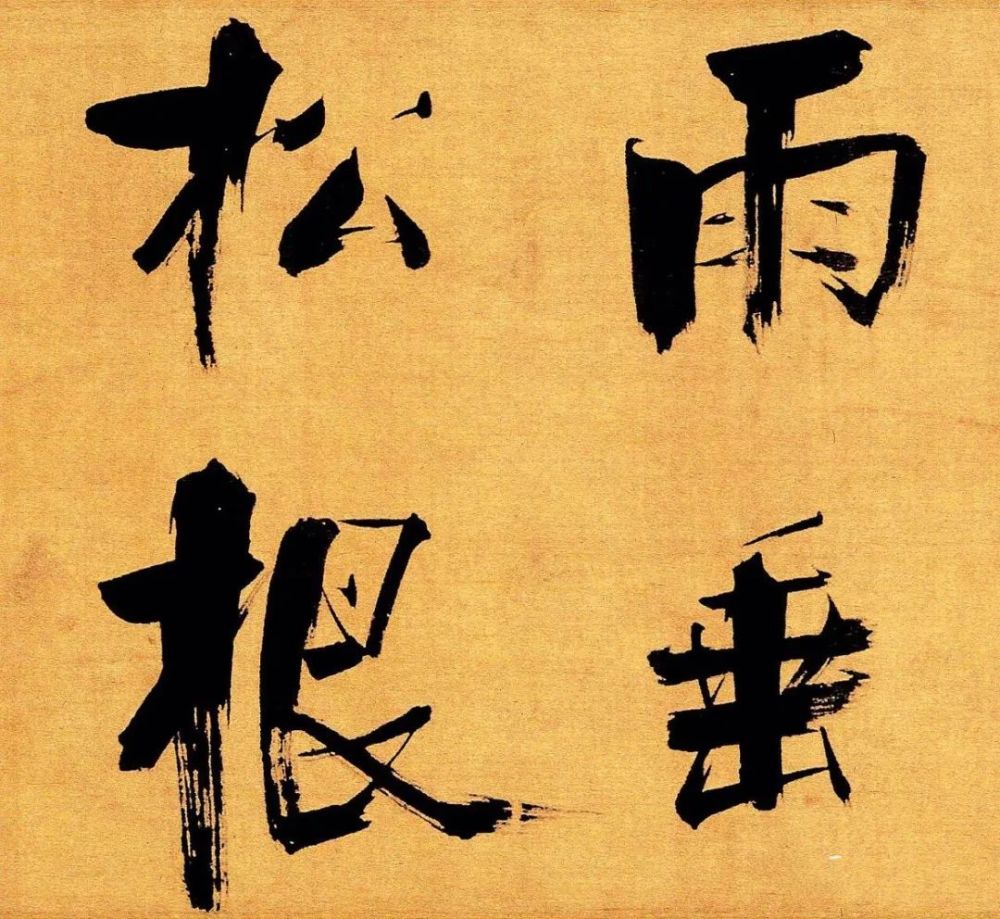 雨垂
松根